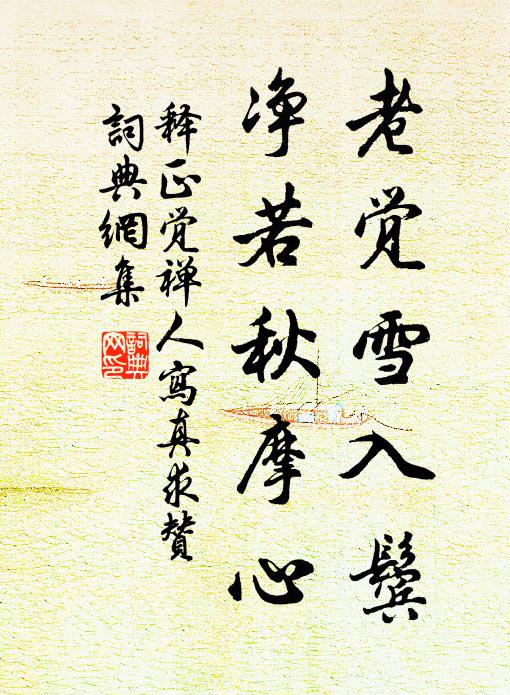 老觉雪入鬓
净若秋摩心
释正觉禅人寫真求赞
詞典網集
詞典網印